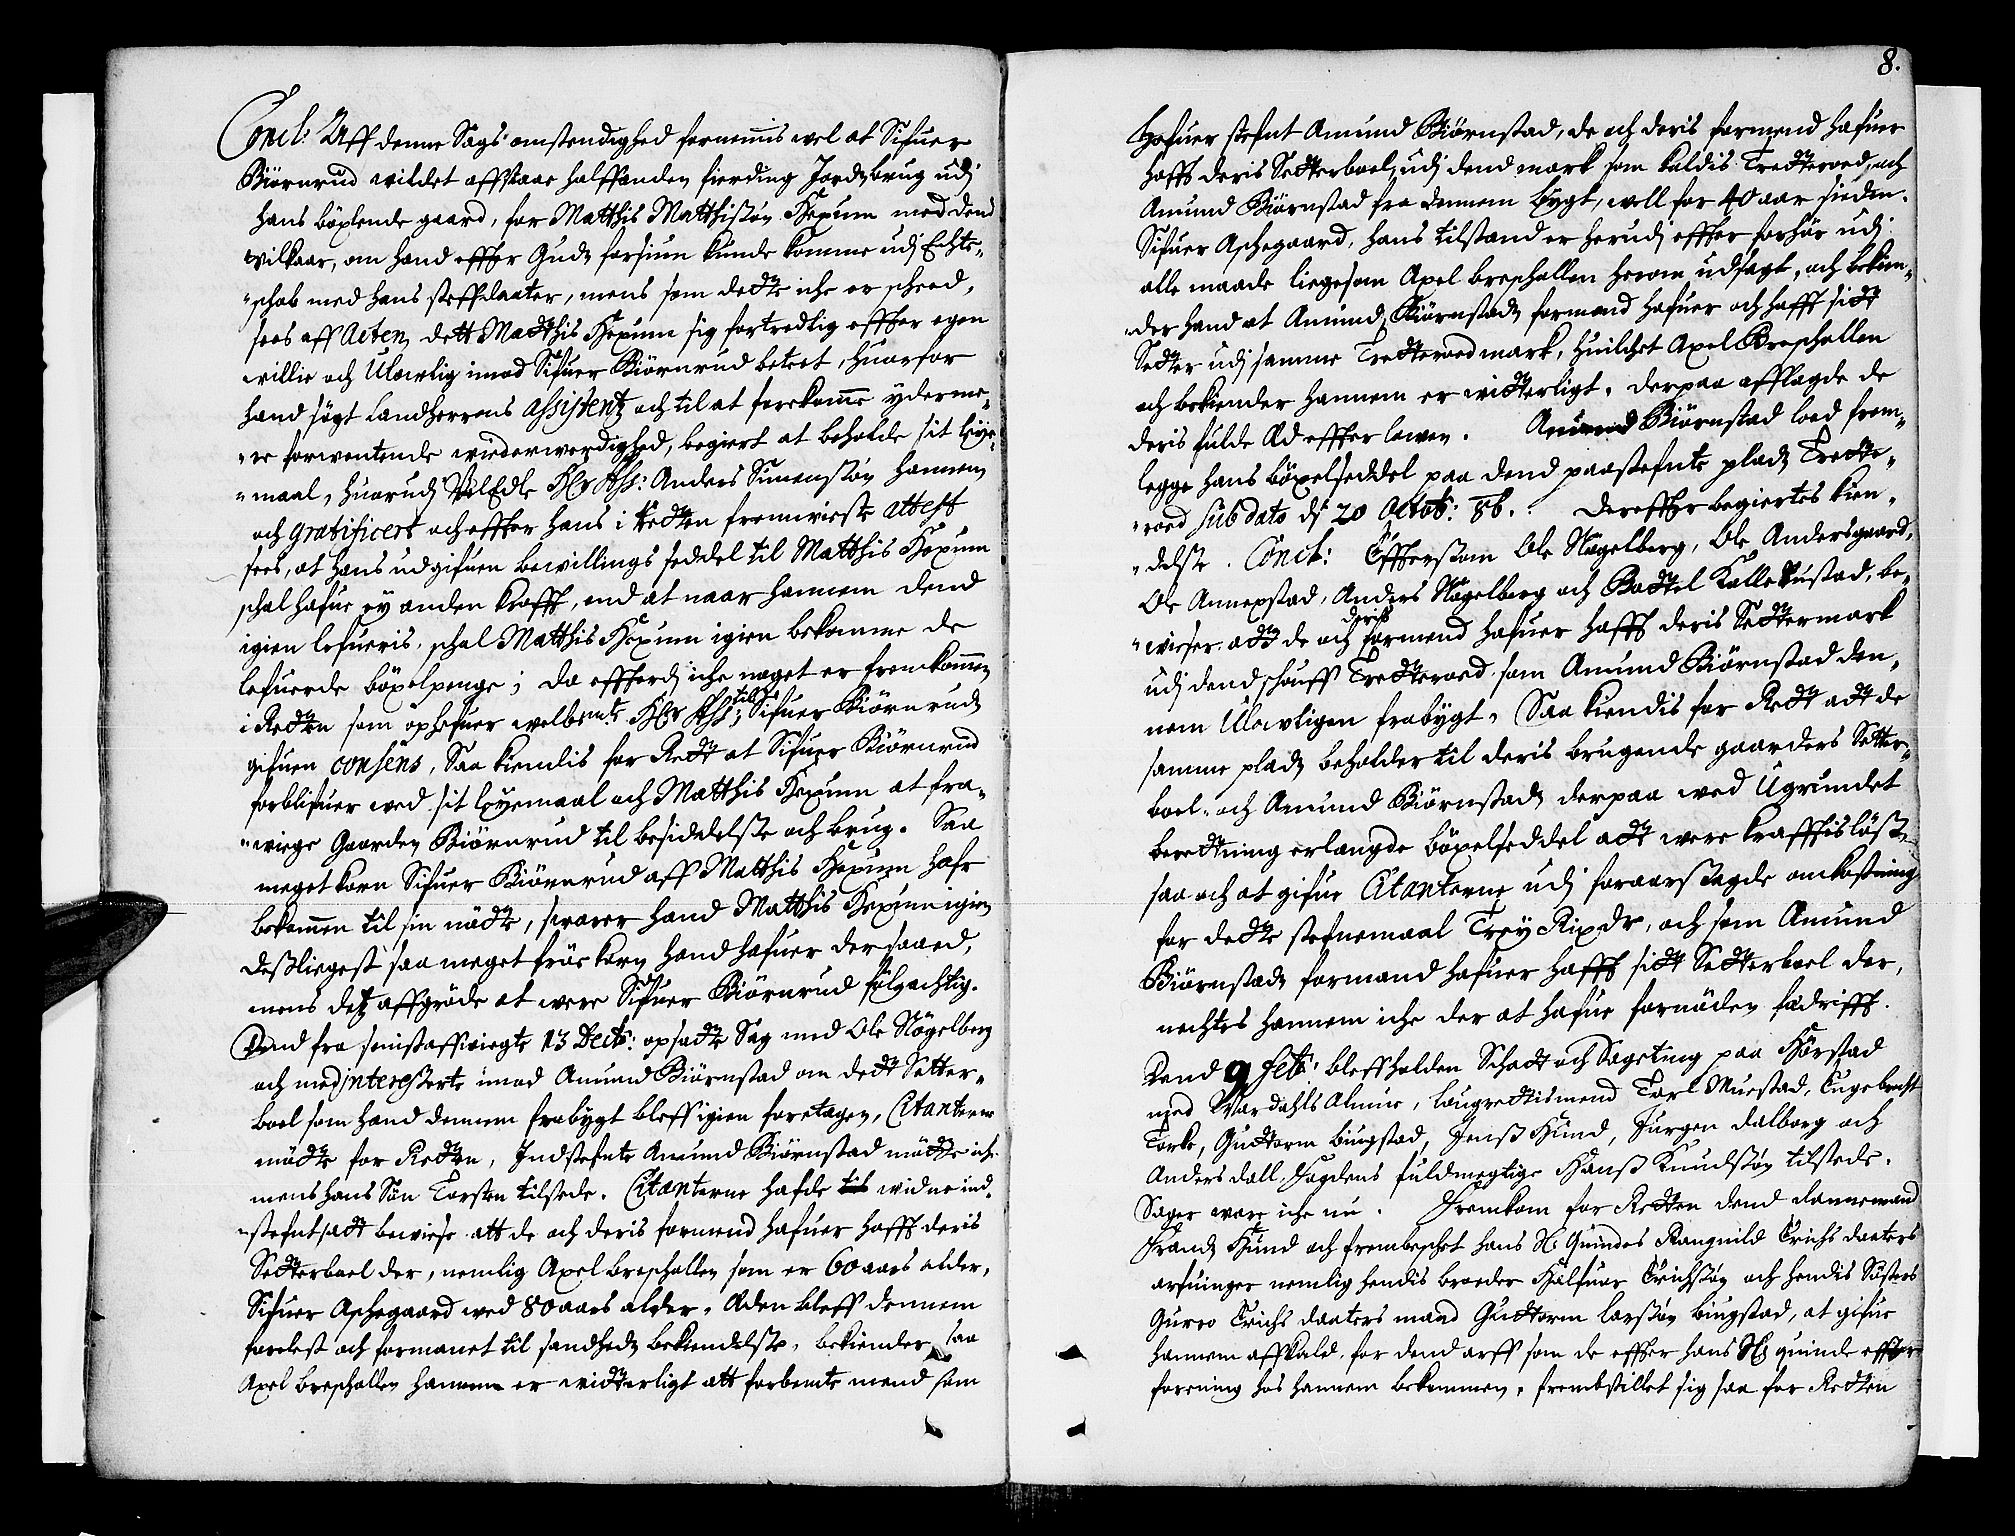 Concl: Aff denne Sags omstendighed fornemis wel at Sifuer
Biørnrud wildet affstaae halffanden fierding Jordz brug udj
hans böxlende gaard, for Matthis Matthisøn Hexum med dend
wilkaar, om hand effter Gudz forsiun kunde komme udj Echte¬
¬schab med hans steffdaater, mens som dedte iche er scheed,
sees aff Acten, dett Madthis Hexum sig fortredlig effter egen
willie och Ulowlig imod Sifuer Biörnrud beteet, huorfor
hand søgt Landherrens assistentz och til at forekomme yderme¬
¬re forwentende wiederwerdighed, begiert at beholde sit leye¬
¬maal, huorudj WelEdle Hr Ass: Anders Simensøn hannem
och gratificert och effter hans i Redten fremwiste attest
sees, at hans udgifuen bewillings seddel til Matthis Hexum
schal hafue ey anden krafft, end at naar hannem dend
igien lefueris, schal Matthis Hexum igien bekomme de
lefuerde böxelpenge; da effterdj iche noget er fremkommen
i Redten som ophefuer welbemte Hr Ass: til Sifuer Biörnrudz
gifuen consens, Saa kiendis for Redt at Sifuer Biörnrud
forblifuer wed sit leyemaal och Matthis Hexum at fra¬
¬wiege Gaarden Biörnrud til besiddelse och brug. Saa
meget korn Sifuer Biörnrud aff Matthis Hexum hafr
bekommen til sin nödte, swarer hand Matthis Hexum igien
desligest saa meget fröe korn hand hafuer der saaed,
mens detz affgröde at were Sifuer Biörnrud følgachtig.
Dend fra sinstaffwiegte 13 Decb: opsadte Sag med Ole Nögelberg
och medjnteresserte imod Amund Biörnstad om dedt Setter¬
boel som hand dennem frabygt bleff igien foretagen, Citanterne
mödte for Redten, Indstefnte Amund Biörnstad mödte iche
mens hans Sön Torsten tilstede. Citanterne hafde til widne ind¬
¬stefnt, adt bewiese att de och deris formend hafuer hafft deris
Sedterboel der, nemlig Axel breschallen som er 60 aars alder,
Sifuer Aschegaard wed 80 aars alder. Æden bleff dennem
forelæst och formanet til sandhedz bekiendelse, bekiender saa
Axel breschallen hannem er widterligt att forbemte mend som
8.
Hafuer stefnt Amund Biörnstad, de och deris formend hafuer
hafft deris Sedterboel, udj dend mark som kaldis Tredteroed, och
Amund Biörnstad fra dennem bygt, well for 40 aar sieden.
Sifuer Aschegaard, hans tilstand er herudj effter forhör udj
alle maade liegesom Axel breschallen herom udsagt, och bekien¬
¬der hand at Amund Biörnstadz formand hafuer och hafft sidt
Sedter udj samme Tredteroed mark, huilchet Axel Breschallen
och bekiender hannem er widterligt. derpaa afflagde de
deris fulde Æd effter lowen. Amund Biörnstad loed frem¬
legge hans böxelseddel paa dend paastefnte pladz Tredte¬
¬roed sub dato dj 20 Octob: 86. Dereffter begiertes kien¬
¬delse. Concl: Efftersom Ole Nögelberg, Ole Andersgaard,
Ole Annexstad, Anders Nögelberg och Badtel Kallerustad, be¬
¬wieser adt de och deris formend hafuer hafft deris Sedtermark
udj dend schouff Tredteroed som Amund Biörnstad den¬
nem Ulowligen frabygt. Saa kiendis for Redt adt de
samme pladz beholder til deris brugende gaarders Setter¬
boel, och Amund Biörnstadz derpaa wed Ugrundet
beredtning erlangde böxelseddel adt were krafftisløst,
saa och at gifue Citanterne udj foraarsagede omkostning
for dedte stefnemaal Trey Rixdr, och som Amund
Biörnstadz formand hafuer hafft sidt Sedterboel der,
nechtes hannem iche der at hafue fornöden fædrifft.
Dend 9 Feb: bleff holden Schadt och Sageting paa Hörstad
med Wardahls Almue, laugredtismend Torl Muestad, Engebrecht
Torke, Gudtorm biugstad, Jens Hund, Jurgen dalborg och
Anders dall, Fogdens fuldmegtige Hans Knudsøn tilstede.
Sager ware iche nu. Fremkom for Redten dend dannemand
Frandz Hund och frembeschet hans Sl: Quindes Rangnild Erichs daaters
arfuinger nemlig hendis broeder Halfuor Erichsøn och hendis Søsters
Guroe Erichs daaters mand Gudtorm larsøn biugstad, at gifue
hannem affkald for dend arff som de effter hans Sl: quinde effter
forening hos hannem bekommen, frembstillet sig saa for Redten